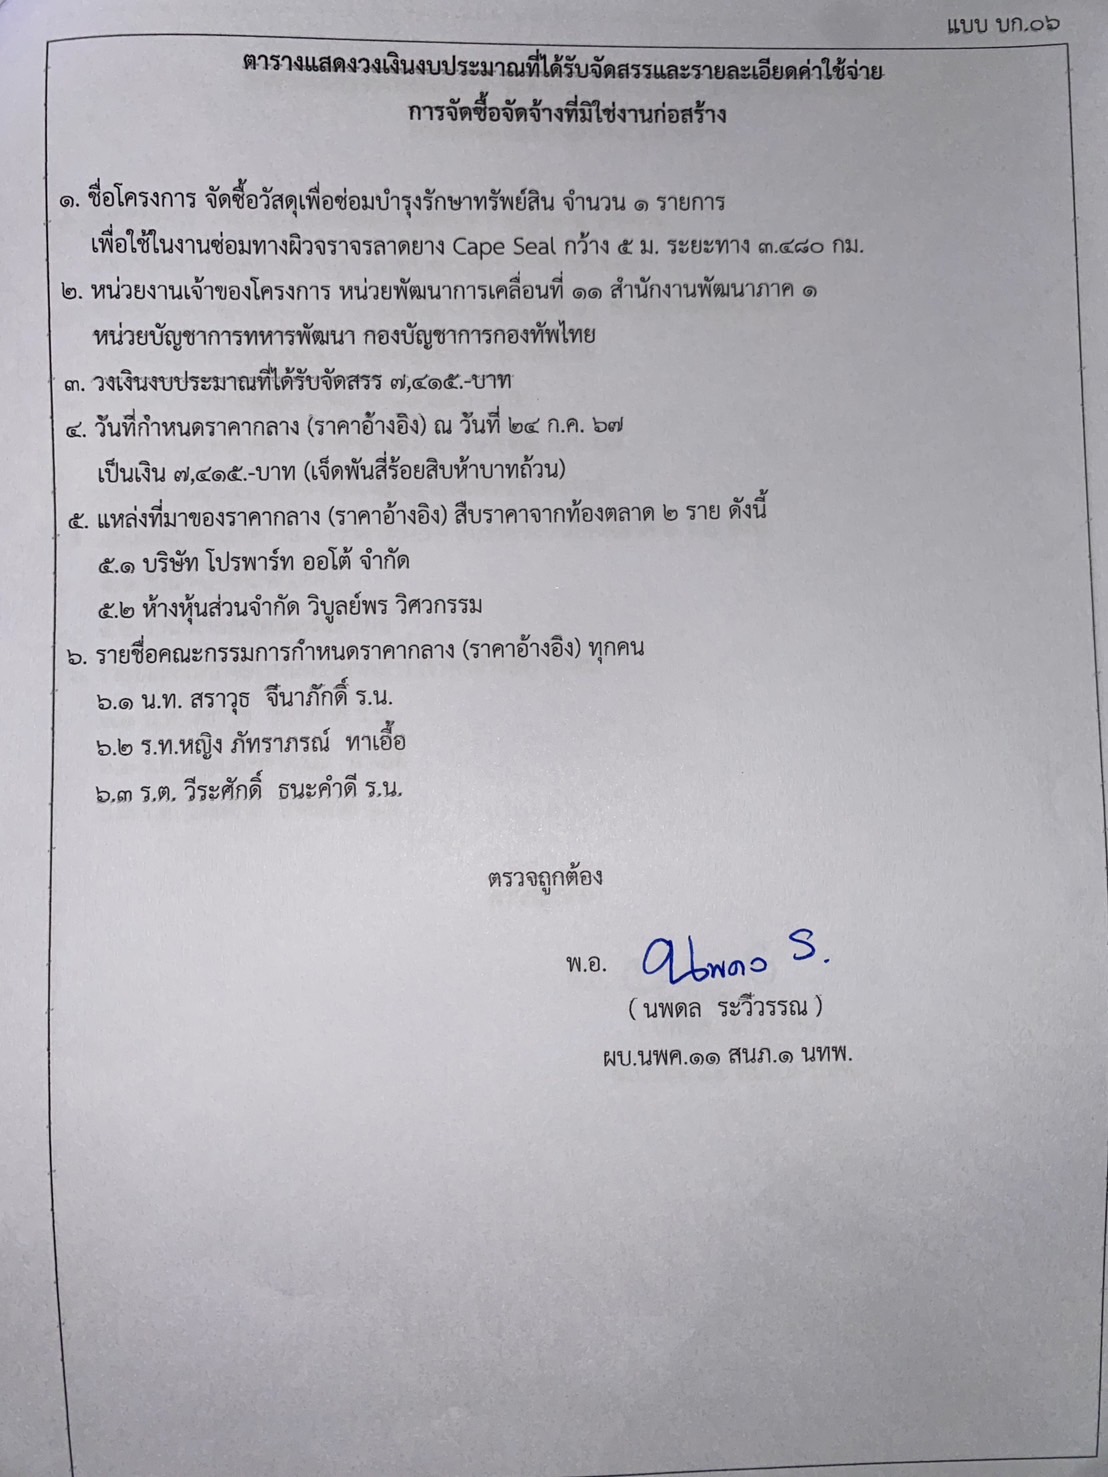 แบบ บก.๐๖
ตารางแสดงวงเงินงบประมาณที่ได้รับจัดสรรและรายละเอียดค่าใช้จ่าย
การจัดซื้อจัดจ้างที่มิใช่งานก่อสร้าง
๑. ชื่อโครงการ จัดซื้อวัสดุเพื่อซ่อมบำรุงรักษาทรัพย์สิน จำนวน ๑ รายการ
เพื่อใช้ในงานซ่อมทางผิวจราจรลาดยาง Cape Seal กว้าง ๕ ม. ระยะทาง ๓.๔๘๐ กม.
๒. หน่วยงานเจ้าของโครงการ หน่วยพัฒนาการเคลื่อนที่ ๑๑ สำนักงานพัฒนาภาค ๑
หน่วยบัญชาการทหารพัฒนา กองบัญชาการกองทัพไทย
๓. วงเงินงบประมาณที่ได้รับจัดสรร ๗,๔๑๕.-บาท
๔. วันที่กำหนดราคากลาง (ราคาอ้างอิง) ณ วันที่ ๒๔ ก.ค. ๖๗
เป็นเงิน ๗,๔๑๕.-บาท (เจ็ดพันสี่ร้อยสิบห้าบาทถ้วน)
๕. แหล่งที่มาของราคากลาง (ราคาอ้างอิง) สืบราคาจากท้องตลาด ๒ ราย ดังนี้
๕.๑ บริษัท โปรพาร์ท ออโต้ จำกัด
๕.๒ ห้างหุ้นส่วนจำกัด วิบูลย์พร วิศวกรรม
๖. รายชื่อคณะกรรมการกำหนดราคากลาง (ราคาอ้างอิง) ทุกคน
๖.๑ น.ท. สราวุธ จีนาภักดิ์ ร.น.
๖.๒ ร.ท.หญิง ภัทราภรณ์ ทาเอื้อ
๖.๓ ร.ต. วีระศักดิ์ ธนะคำดี ร.น.
ตรวจถูกต้อง
พ.อ. นพดล ร.
( นพดล ระวีวรรณ )
ผบ.นพค.๑๑ สนภ.๑ นทพ.